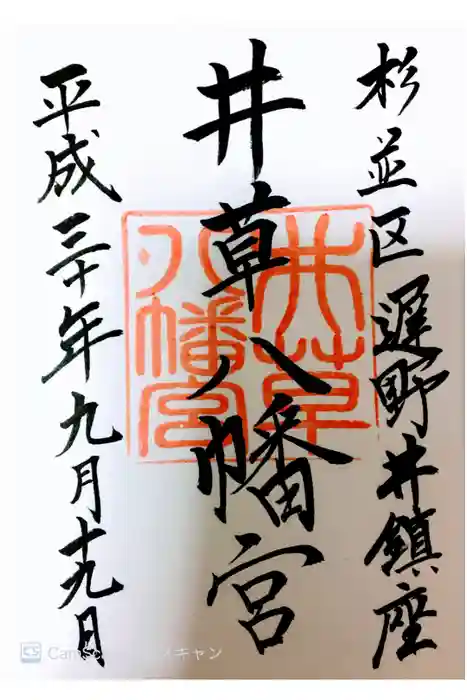 杉並区遅野井鎮座
井草八幡宮
平成三十年九月十九日
井草
八幡宮